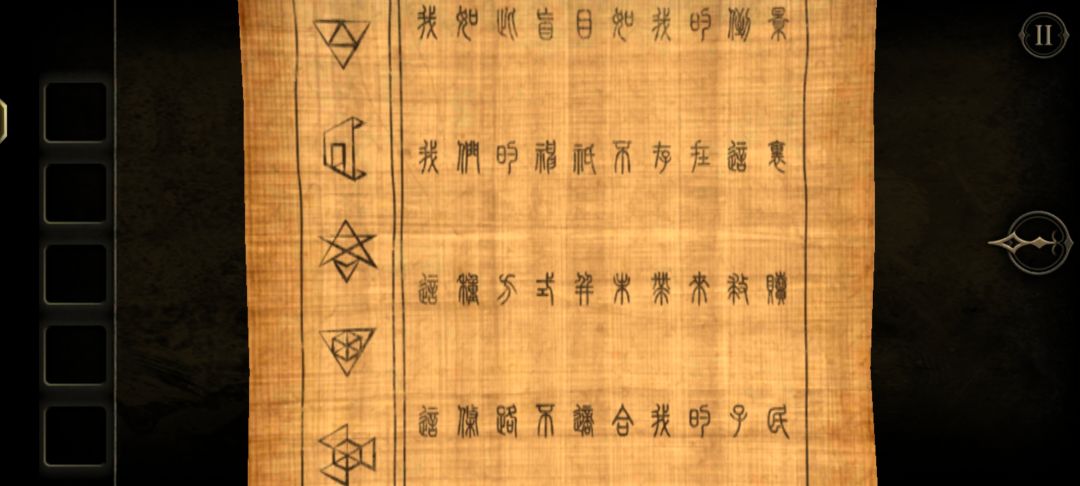 我如此盲目如我的倒景
我們的神祇不存在這裏
這種方式並未帶來救贖
這條路不適合我的子民